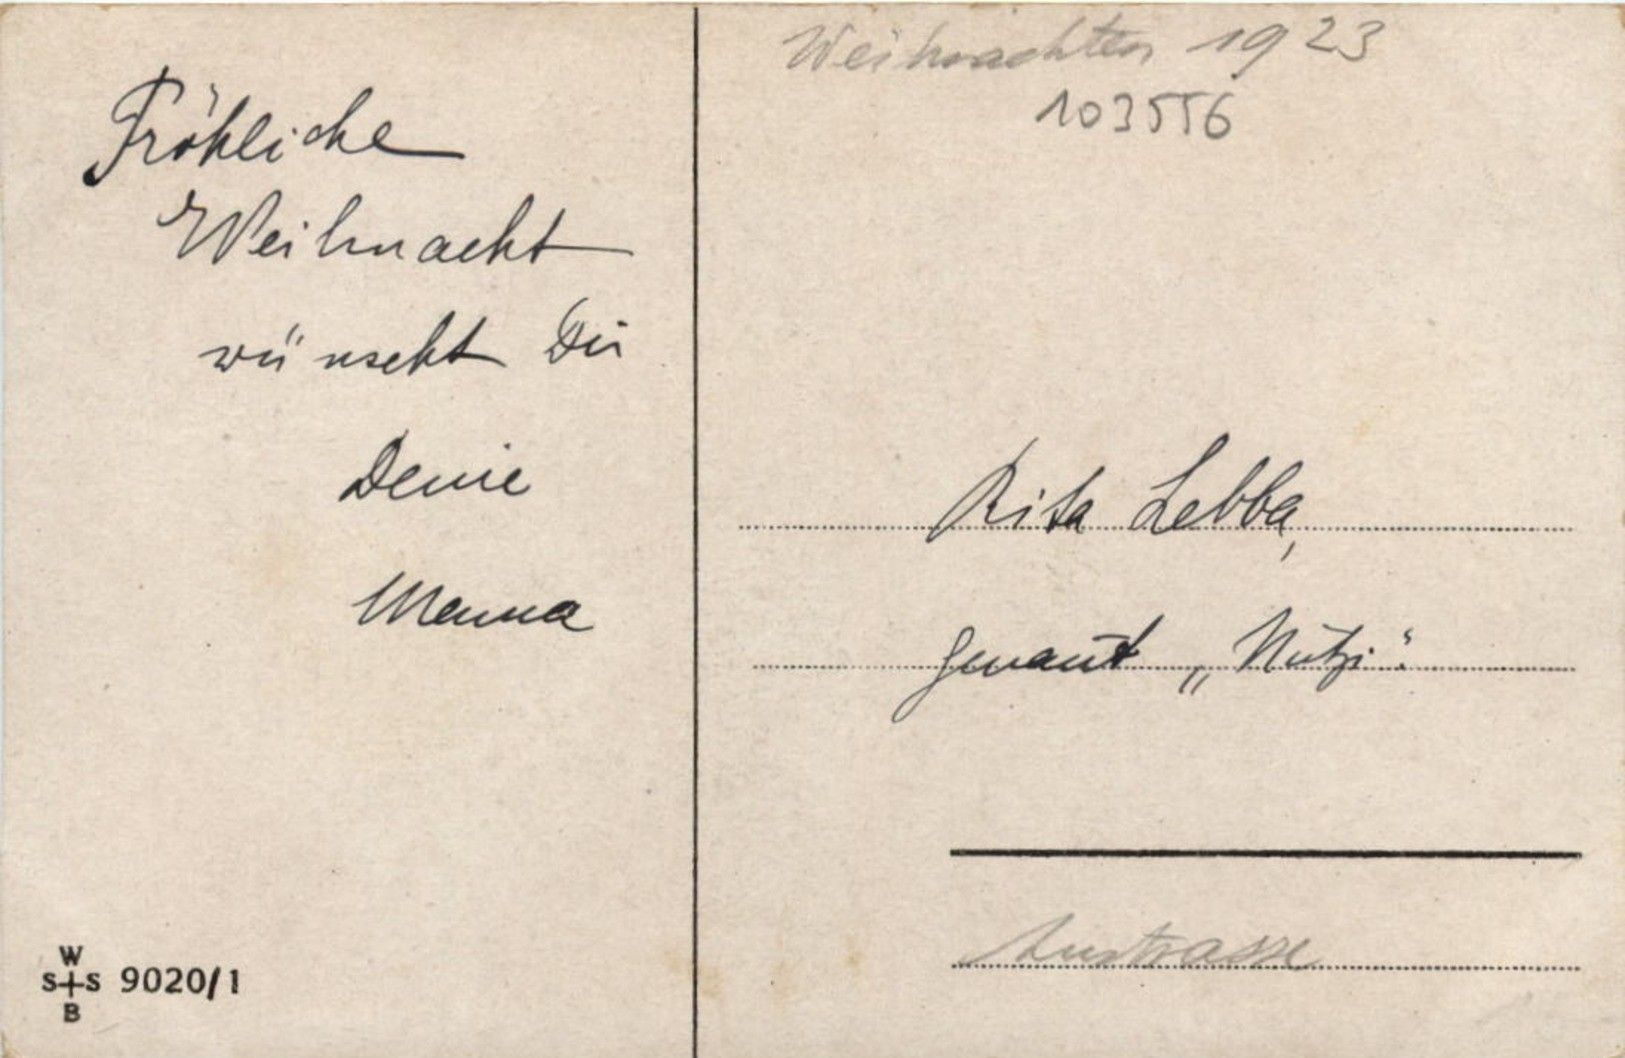 Fröhliche
Weihnacht
wünscht Dir
Deine
Mama
W
S+S 9020/1
B
Weihnachten 1923
103556
Rita Lebba,
genannt „Mützi“.
Austrasse